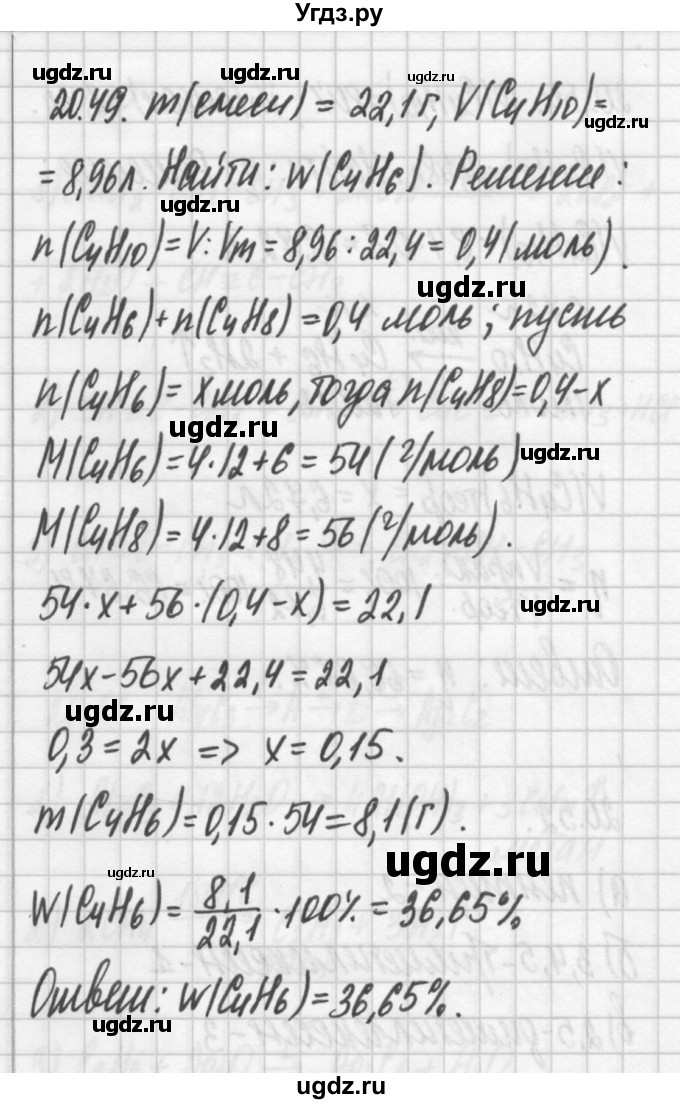 Угдз.ру
ugdz.ru ugdz.ru ugdz.ru
20.49. m(смеси) = 22,1 г, V(C₄H₁₀)=
ugdz.ru
= 8,96л. Найти: w(C₄H₆). Решение:
ugdz.ru
n(C₄H₁₀)=V:Vm=8,96:22,4=0,4(моль).
ugdz.ru
n(C₄H₆)+n(C₄H₈)=0,4 моль; пусть
n(C₄H₆)=x моль, тогда n(C₄H8)=0,4-x
ugdz.ru
M(C₄H₆)=4·12+6=54(г/моль)
ugdz.ru
M(C₄H₈)=4·12+8=56(г/моль).
54·x+56·(0,4-x)=22,1
ugdz.ru
54x-56x+22,4=22,1
ugdz.ru
0,3=2x => x=0,15.
m(C₄H₆)=0,15·54=8,1(г).
ugdz.ru
ugdz.ru
W(C₄H₆)=8,1/22,1·100%=36,65%
Ответ: w(C₄H₆)=36,65%.
ugdz.ru
ugdz.ru